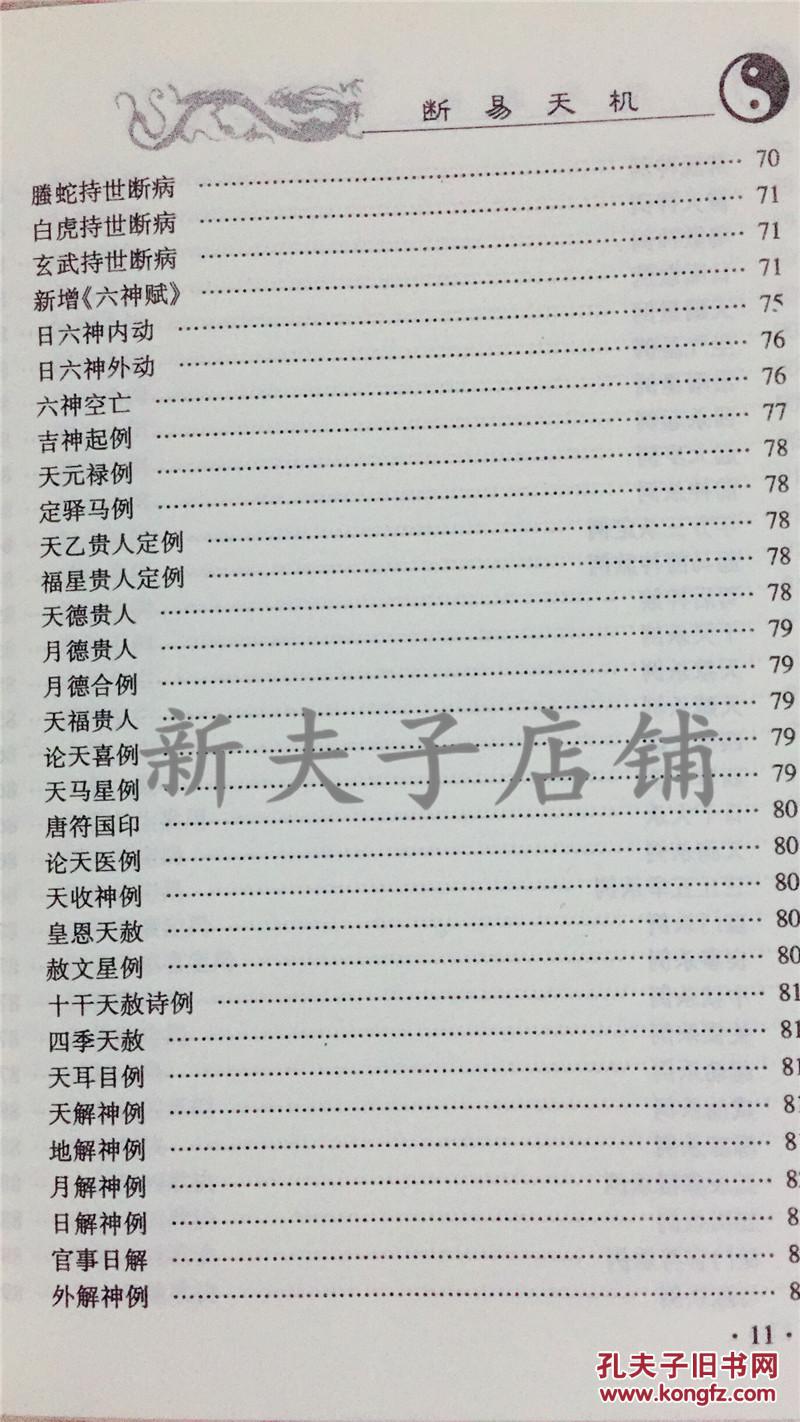 断易天机
螣蛇持世断病 …… 70
白虎持世断病 …… 71
玄武持世断病 …… 71
新增《六神赋》 …… 71
日六神内动 …… 75
日六神外动 …… 76
六神空亡 …… 76
吉神起例 …… 77
天元禄例 …… 78
定驿马例 …… 78
天乙贵人定例 …… 78
福星贵人定例 …… 78
天德贵人 …… 78
月德贵人 …… 79
月德合例 …… 79
天福贵人 …… 79
论天喜例 …… 79
天马星例 …… 79
唐符国印 …… 80
论天医例 …… 80
天收神例 …… 80
皇恩天赦 …… 80
赦文星例 …… 80
十干天赦诗例 …… 81
四季天赦 …… 81
天耳目例 …… 81
天解神例 …… 81
地解神例 …… 81
月解神例 …… 8
日解神例 …… 8
官事日解 …… 8
外解神例 …… 8
·11·
新夫子店铺
孔夫子旧书网
www.kongfz.com